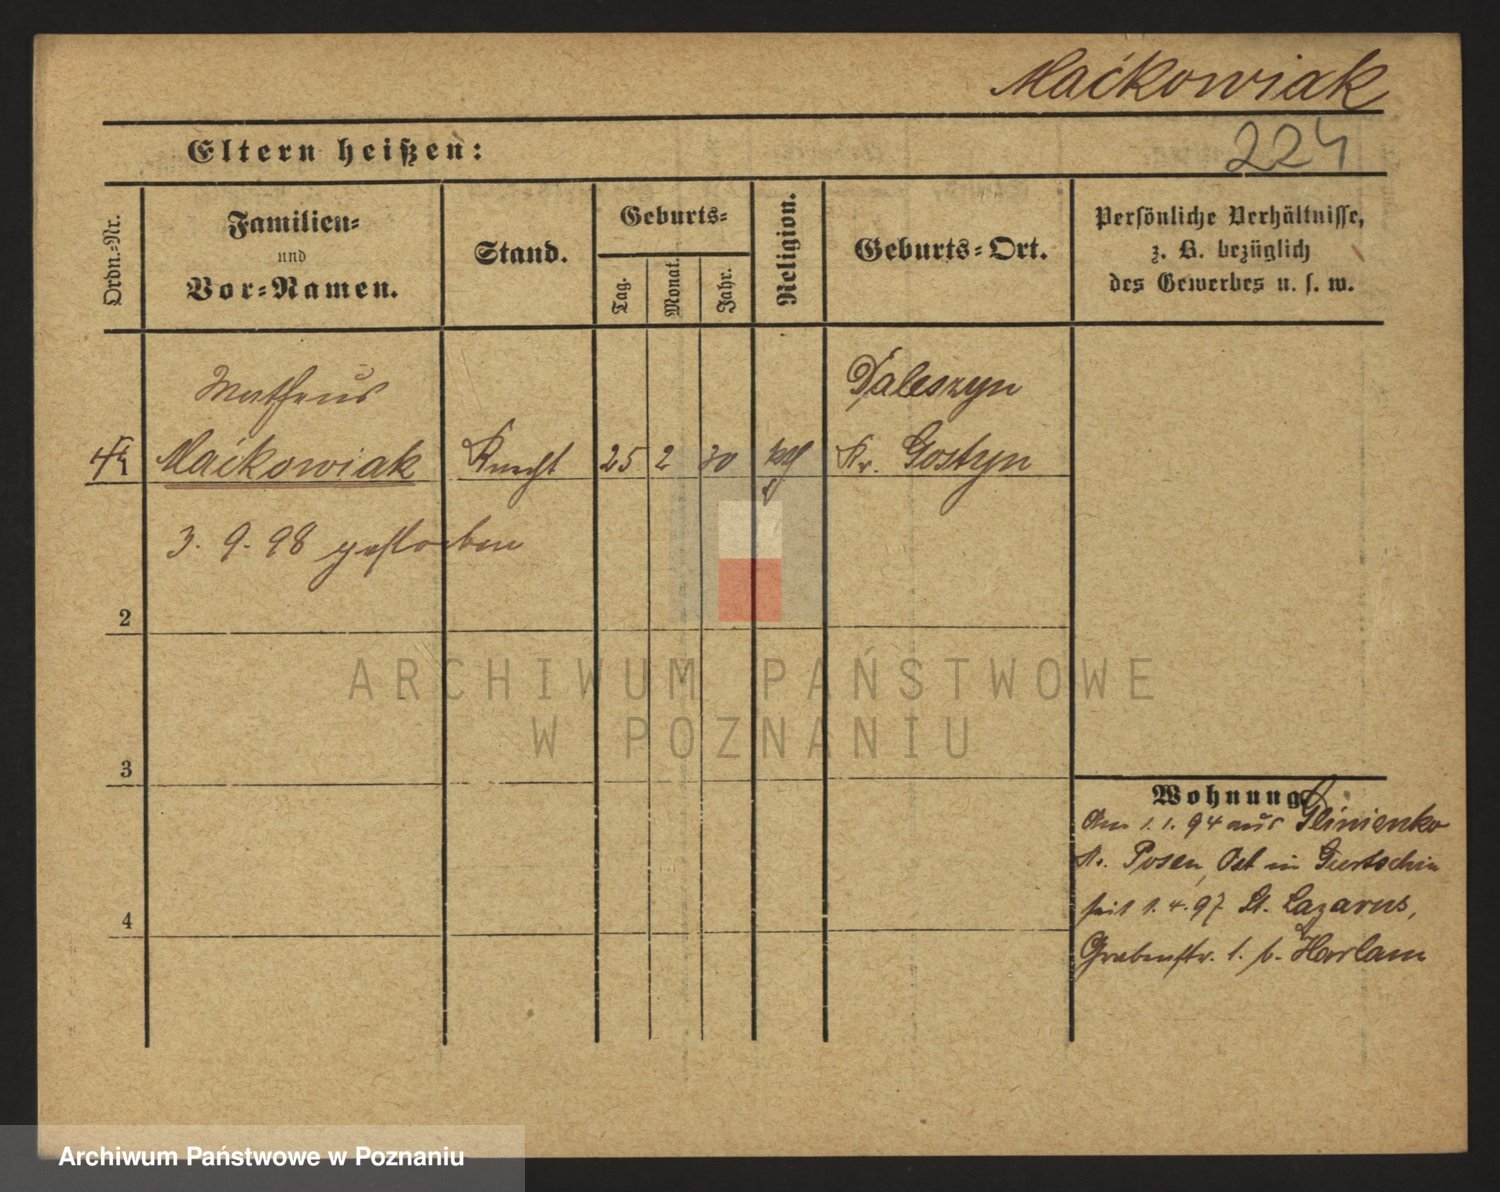 Maćkowiak
Eltern heißen:
224
Ordn.-Nr.
Familien-
und
Vor-Namen.
Stand.
Geburts-
Tag.
Monat.
Jahr.
Religion.
Geburts-Ort.
Persönliche Verhältnisse,
z. B. bezüglich
des Gewerbes u. s. w.
Matheus
Maćkowiak
Knecht
25
2
30
kth
Daleszyn
Kr. Gostyn
3. 9. 98 gestorben
2
3
4
Wohnung
Am 1.1.94 aus Glinienko
Kr. Posen, Ost in Gurtschin
seit 1.4.97 St. Lazarus,
Grabenstr. 1. b. Harlam
ARCHIWUM PAŃSTWOWE
W POZNANIU
Archiwum Państwowe w Poznaniu